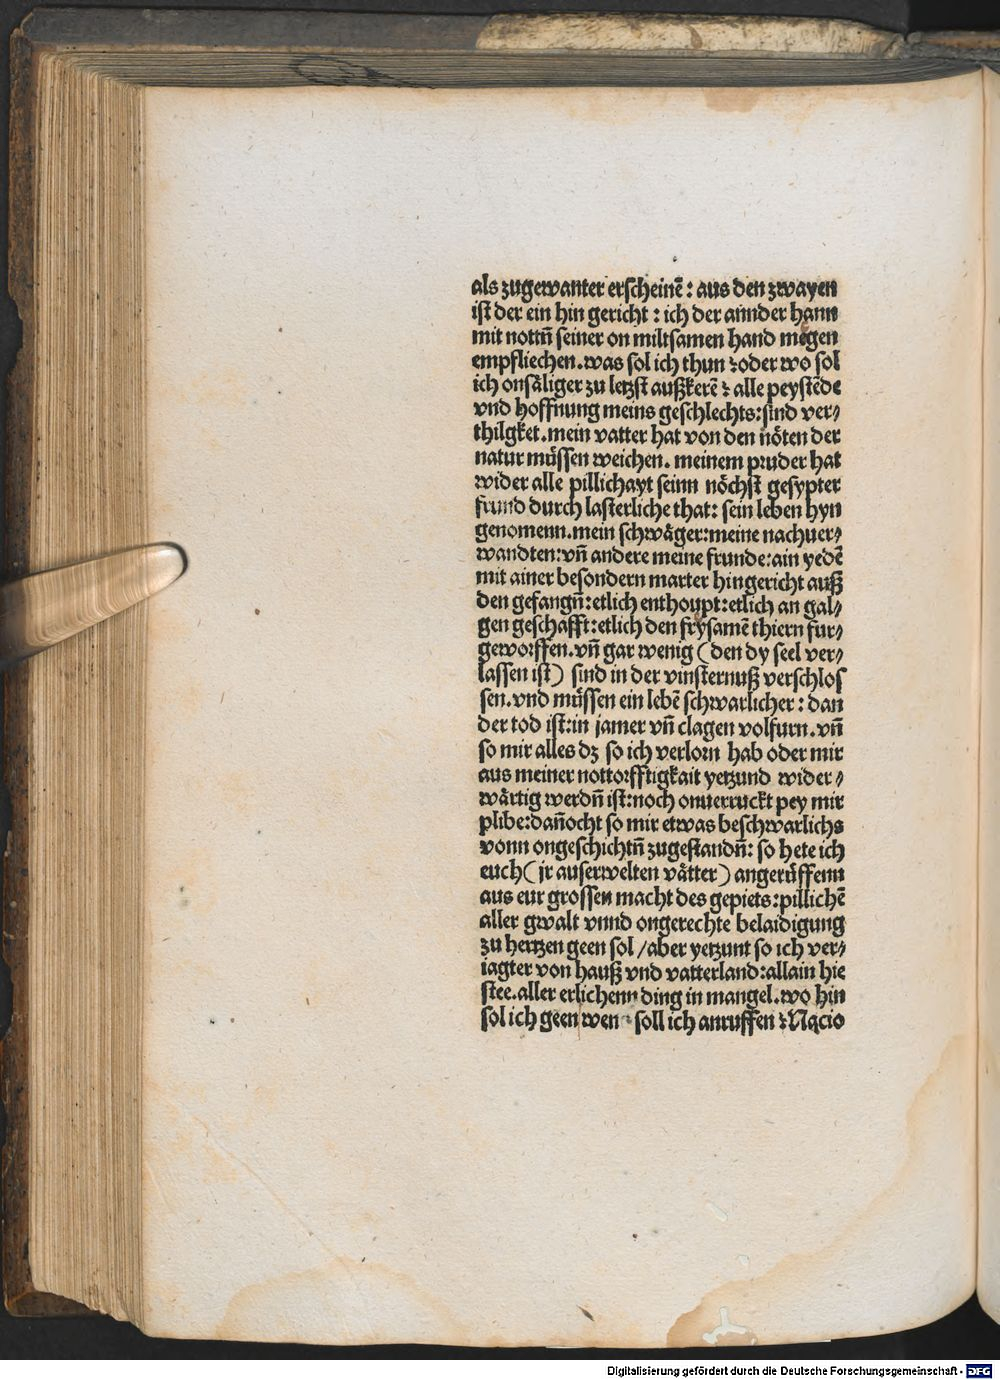 als zugewanter erscheinē: aus den zwayen
ist der ein hin gericht: ich der annder hann
mit nottn̄ seiner on miltsamen hand megen
empfliechen. was sol ich thun ꝛ oder wo sol
ich onsäliger zu letzst außkerē ꝛ alle peystēde
vnd hoffnung meins geschlechts: sind ver⸗
thilgket. mein vatter hat von den nöten der
natur müssen weichen. meinem pruder hat
wider alle pillichayt seinn nöchst gesypter
frund durch lasterliche that: sein leben hyn
genomenn. mein schwäger: meine nachuer⸗
wandten: vn̄ andere meine frunde: ain yedē
mit ainer besondern marter hingericht auß
den gefangn̄: etlich enthoupt: etlich an gal⸗
gen geschafft: etlich den fraysamē thiern fur⸗
geworffen. vn̄ gar wenig (den dy seel ver⸗
lassen ist) sind in der vinsternuß verschlos
sen. vnd müssen ein lebē schwarlicher: dan
der tod ist: in jamer vn̄ clagen volfurn. vn̄
so mir alles dz so ich verlorn hab oder mir
aus meiner nottorfftigkait yetzund wider⸗
wärtig werdn̄ ist: noch onuerruckt pey mir
plibe: dan̄ocht so mir etwas beschwarlichs
vonn ongeschichtn̄ zugestandn̄: so hete ich
euch (jr auserwelten vätter) angerüffenn
aus eur grossen macht des gepiets: pillichē
aller gwalt vnnd ongerechte belaidigung
zu hertzen geen sol / aber yetzunt so ich ver⸗
iagter von hauß vnd vatterland: allain hie
stee. aller erlichenn ding in mangel. wo hin
sol ich geen wen soll ich anruffen ꝛ Nacio
Digitalisierung gefördert durch die Deutsche Forschungsgemeinschaft - DFG